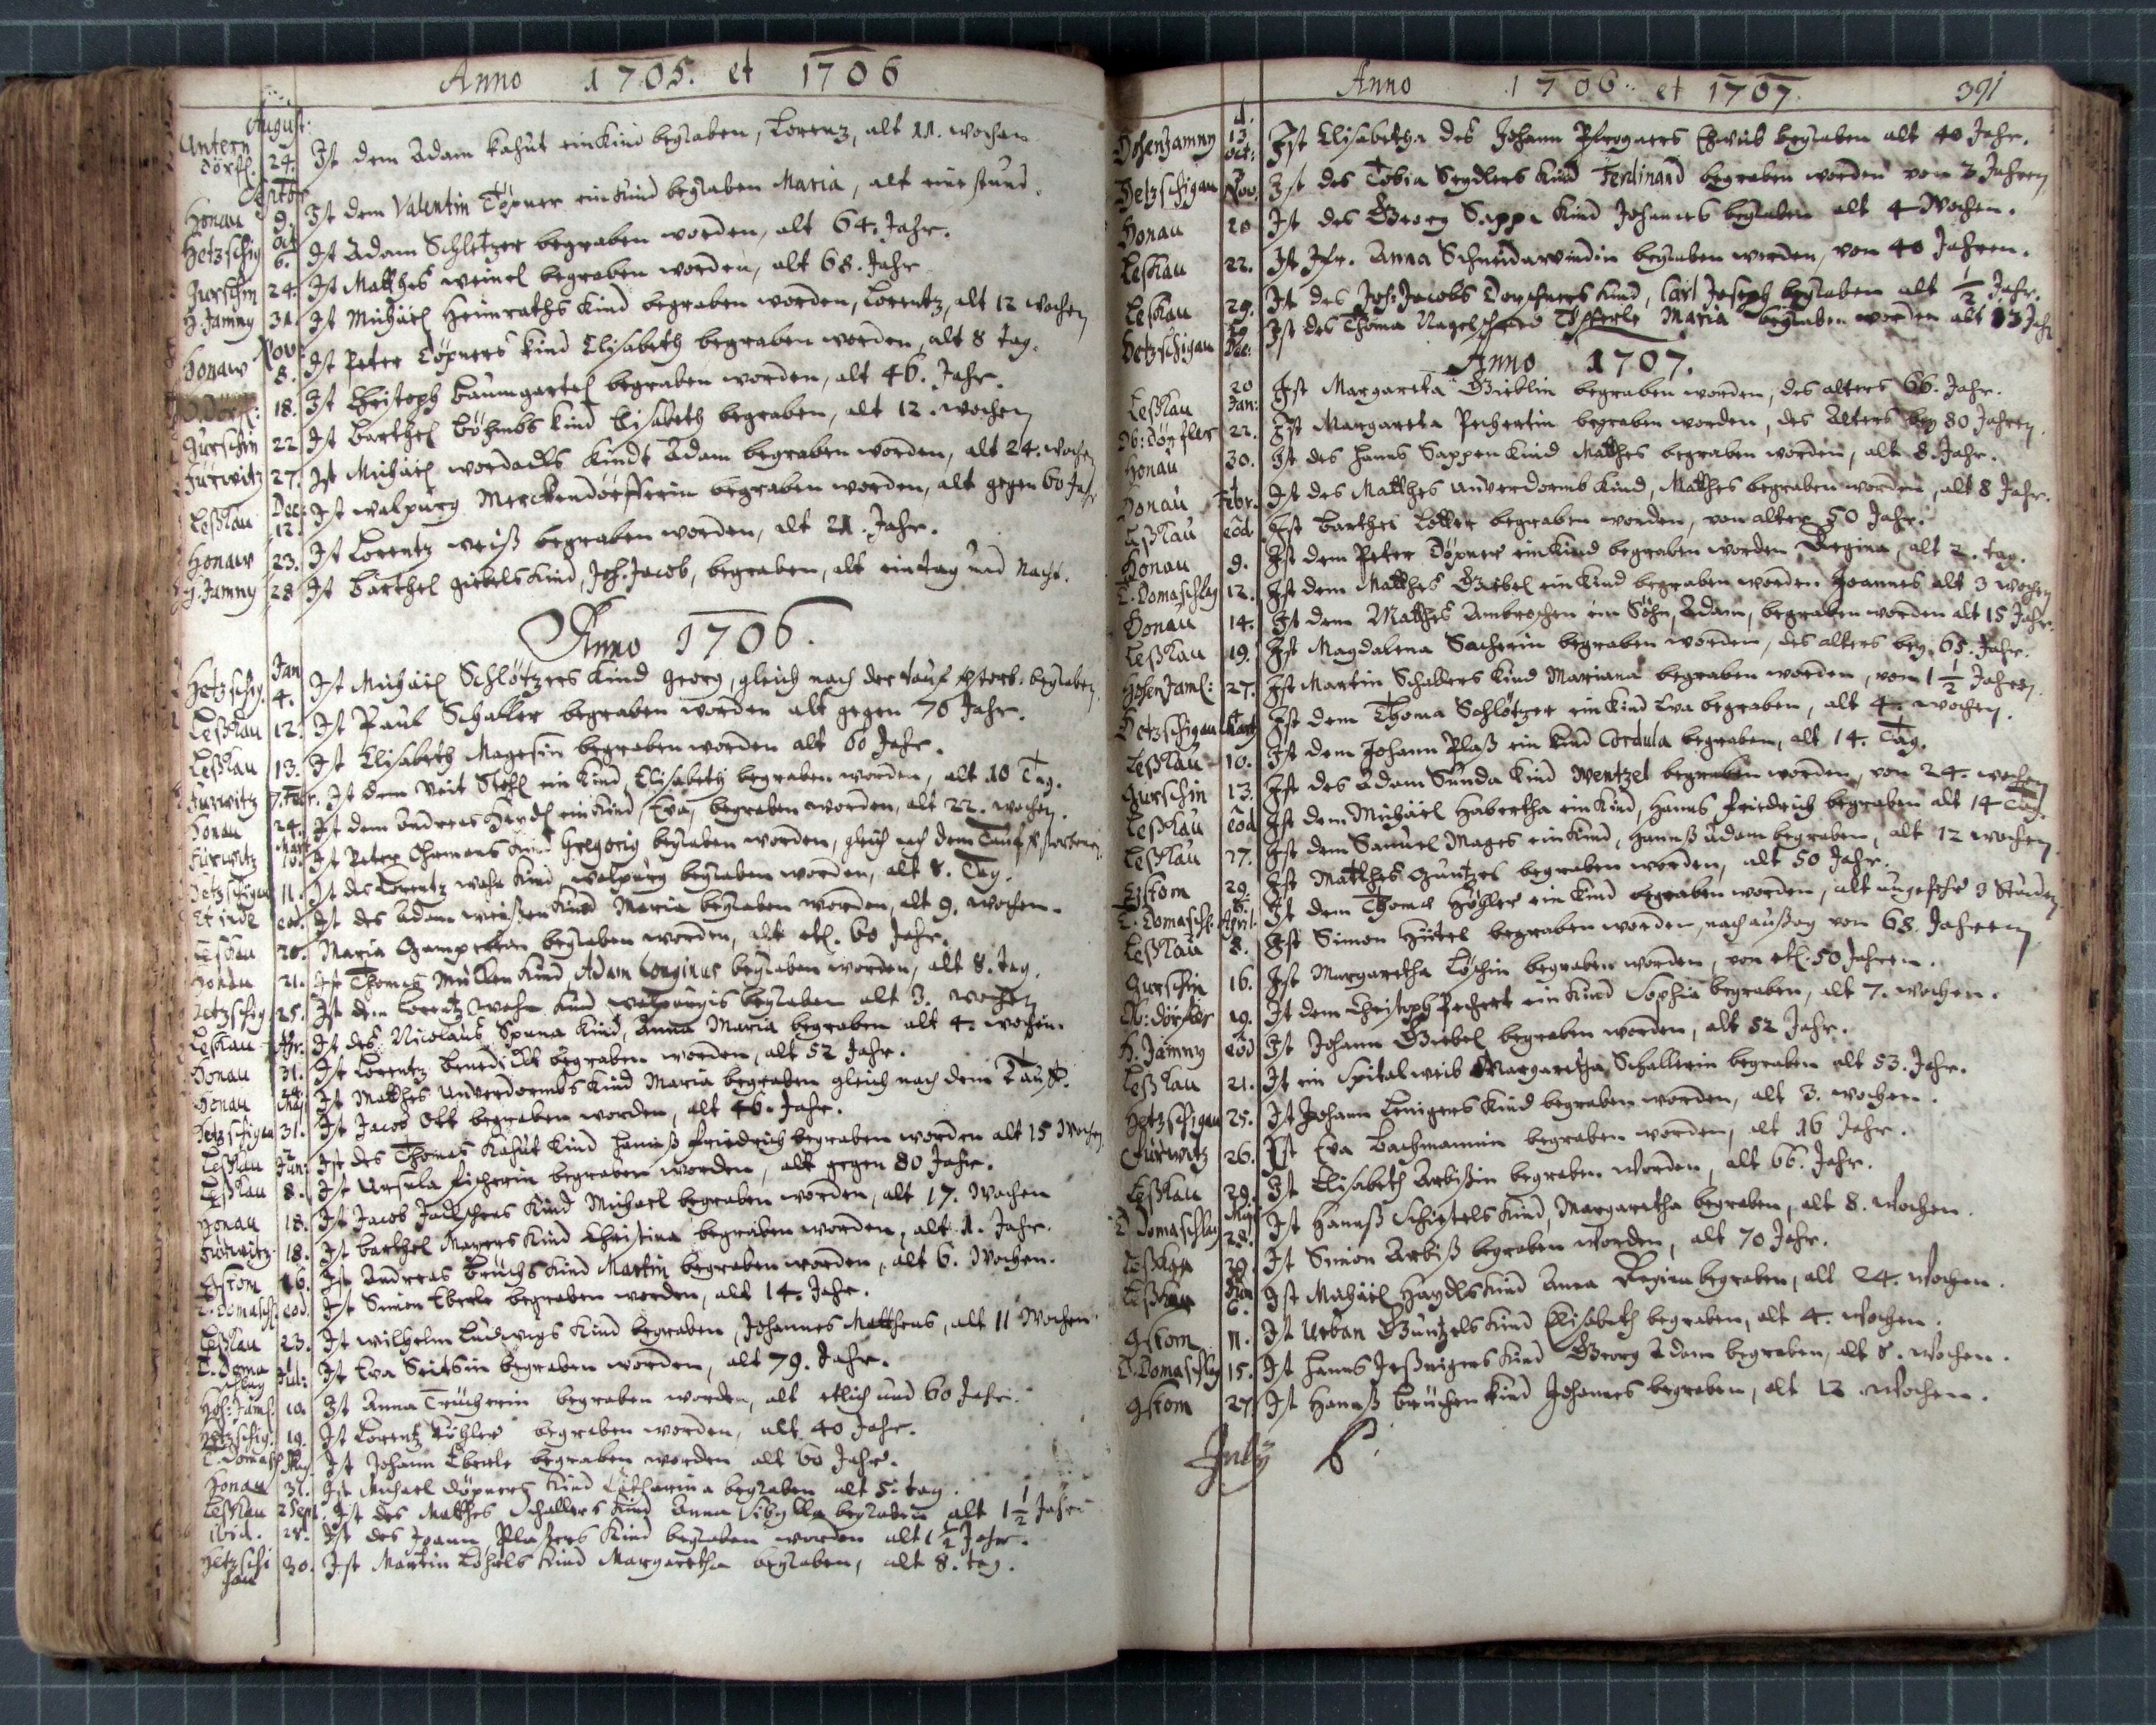 Anno 1705. et 1706
August:
Untern
dörfl. 24. Ist dem Adam Kahut ein Kind begraben, Lorenz, alt 11. wochen
Septbr
Honau 9. Ist dem Valentin Töpner ein Kind begraben Maria, alt eine stund.
Oct
Hetzschig 6. Ist Adam Schletzer begraben worden, alt 64. Jahr.
Gurschin 24. Ist Matthes weinel begraben worden, alt 68. Jahr
H. Jamny 31. Ist Michael Heinraths Kind begraben worden, Lorentz, alt 12 wochen
Nov:
Honaw 8. Ist Peter Döpners Kind Elisabeth begraben worden, alt 8 tag.
18. Ist Christoph Baumgartel begraben worden, alt 46. Jahr.
Gurschin 22 Ist Barthel Böhmbs Kind Elisabeth begraben, alt 12. wochen
Fürwitz 27. Ist Michael Kindt Adam begraben worden, alt 24. wochen
Dec:
Leßkau 12. Ist walpurg Merckendörfferin begraben worden, alt gegen 60 Jahr
Honaw 23. Ist Lorentz weiß begraben worden, alt 21. Jahr.
H. Jamny 28 Ist Barthel giebels Kind, Joh. Jacob, begraben, alt ein tag und Nacht.
Anno 1706.
Jan
Hetzschig. 4. Ist Michael Schlötzers Kind Georg, gleich nach der tauf begraben
Leßkau 12. Ist Paul Schaller begraben worden alt gegen 76 Jahr.
Leßkau 13. Ist Elisabeth Magesin begraben worden alt 60 Jahr.
Fürwitz 7. Febr. Ist dem Veit Stöhl ein Kind Elisabeth begraben worden, alt 10 Tag.
Honau 24. Ist dem Andreas Heydl ein Kind, Eva, begraben worden, alt 22. wochen.
Mart
Fürwitz 10. Ist Peter Kind Gregorig begraben worden, gleich nach dem Tauf
Hetzschigau 11. Ist des Lorentz Kind walpurg begraben worden, alt 8. Tag.
eod. Ist des Adam weißen Kind Maria begraben worden, alt 9. wochen.
Leskau 20. Maria begraben worden, alt etl. 60 Jahr.
Honau 21. Ist Thomas Müllers Kind Adam Longinus begraben worden, alt 8. tag.
Hetzschig 25. Ist dem Lorentz Kind walpurgis begraben alt 3. wochen
Leskau Apr. Ist des Nicolaus Kind, Anna Maria begraben alt 4. wochen.
Honau 31. Ist Lorentz Benedikt begraben worden, alt 52 Jahr.
Honau Maj Ist Matthes Unverdormbs Kind Maria begraben gleich nach dem Tauff.
Hetzschigau 31. Ist Jacob Ott begraben worden, alt 46. Jahr.
Leßkau Jun: Ist des Thomas Kahut Kind Hannß Friedrich begraben worden alt 15 Wochen
Leßkau 8. Ist Ursula Fischerin begraben worden, alt gegen 80 Jahr.
Honau 18. Ist Jacob Kind Michael begraben worden, alt 17. Wochen
Fürwitz 18. Ist Barthel Mayers Kind Christina begraben worden, alt 1. Jahr.
Gstom 16. Ist Andreas Bruchs Kind Martin begraben worden, alt 6. Wochen.
T. Domaschl. eod. Ist Simon Eberle begraben worden, alt 14. Jahr.
Leßkau 23. Ist Wilhelm Ludwigs Kind begraben, Johannes Mattheus, alt 11 Wochen
T. Doma
schlag Jul: Ist Eva Seitsin begraben worden, alt 79. Jahr.
Hoh: Jaml. 10. Ist Anna begraben worden, alt etlich und 60 Jahr.
Hetzschig. 19. Ist Lorentz Köhler begraben worden, alt 40 Jahr.
T. Domasch Aug. Ist Johann Eberle begraben worden alt 60 Jahr.
Honau 31. Ist Michael Döpners Kind Catharina begraben alt 5. tag.
Leßkau 2 Sept. Ist des Matthes Schallers Kind Anna Sibylla begraben alt 1 1/2 Jahr
ibid. 28. Ist des Joann Plaßers Kind begraben worden alt 1 1/2 Jahr.
Hetzschi
gau 30. Ist Martin Kind Margaretha begraben, alt 8. tag.
Anno 1706. et 1707. 391
Hohenjamny 13 Oct: Ist Elisabetha des Johann Pfrogners Eheweib begraben alt 40 Jahr.
Hetzschigau Nov. Ist des Tobia Seydlers Kind Ferdinand begraben worden von 3 Jahren
Honau 20 Ist des Georg Sappe Kind Johannes begraben alt 4 Wochen.
Leskau 22. Ist Jfr. Anna begraben worden, von 40 Jahren.
Leskau 29. Ist des Joh: Jacobs Kind, Carl Joseph begraben alt 1/2 Jahr.
Hetzschigau Dec: Ist des Thoma Nagelschmid Maria begraben worden alt 13 Jahr
Anno 1707.
Leßkau 20 Jan: Ist Margareta Gieblin begraben worden, des alters 66. Jahr.
Ob: dörfler 22. Ist Margareta Pechertin begraben worden, des Alters bey 80 Jahren.
Honau 30. Ist des Hanns Sappen Kind Matthes begraben worden, alt 8. Jahr.
Honau Febr. Ist des Matthes Unverdormb Kind, Matthes begraben worden, alt 8 Jahr.
Leßkau eod. Ist Barthel Loller begraben worden, von alter 50 Jahr.
Honau 9. Ist dem Peter Döpner ein Kind begraben worden Regina, alt 2. tag.
T. Domaschlag 12. Ist dem Matthes Giebel ein Kind begraben worden Joannes alt 3 wochen
Honau 14. Ist dem Matthes Ambroschen ein Sohn, Adam, begraben worden alt 15 Jahr.
Leßkau 19. Ist Magdalena Sacherin begraben worden, des alters bey 65. Jahr.
Hohen Jaml: 27. Ist Martin Schallers Kind Mariana begraben worden, von 1 1/2 Jahren.
Hetzschigau Mart Ist dem Thoma Schlötzer ein Kind Eva begraben, alt 4. wochen.
Leßkau 10. Ist dem Johann Plaß ein Kind Cordula begraben, alt 14. Tag.
Gurschin 13. Ist des Adam Sunda Kind Wentzel begraben worden, von 24. wochen
Leßkau eod Ist dem Michael Habertha ein Kind, Hanns Friedrich begraben alt 14 Tag.
Leßkau 27. Ist dem Samuel Mages ein Kind, Hannß Adam begraben, alt 12 wochen
Gstom 29. Ist Matthes Guntzes begraben worden, alt 50 Jahr.
T. Domaschl. April. Ist dem Thomas Köhler ein Kind begraben worden, alt ungefehr 3 Stunden
Leßkau 8. Ist Simon Hüttel begraben worden, nach außag von 68. Jahren
Gurschin 16. Ist Margaretha Löschin begraben worden, von etl. 50 Jahren.
Ob: dörfler 19. Ist dem Christoph Pechert ein Kind Sophia begraben, alt 7. wochen.
H. Jamny eod Ist Johann Giebel begraben worden, alt 52 Jahr.
Leßkau 21. Ist ein Spitalweib Margaretha Schallerin begraben alt 53. Jahr.
Hetzschigau 25. Ist Johann Kind begraben worden, alt 3. wochen.
Fürwitz 26. Ist Eva Bachmannin begraben worden, alt 16 Jahr.
Leßkau 29. Ist Elisabeth Arbißin begraben worden, alt 66. Jahr.
T. Domaschlag Maj 28. Ist Hannß Schirtels Kind, Margaretha begraben, alt 8. Wochen.
Leßkau 29. Ist Simon Arbiß begraben worden, alt 70 Jahr.
Leßkau Jun 6. Ist Michael Haydls Kind Anna Regina begraben, alt 24. wochen.
Gstom 11. Ist Urban Guntzels Kind Elisabeth begraben, alt 4. Wochen.
T. Domaschlag 15. Ist Hanns Kind Georg Adam begraben, alt 8. wochen.
Gstom 27. Ist Hannß Bruchen Kind Johannes begraben, alt 12 wochen.
July 6.